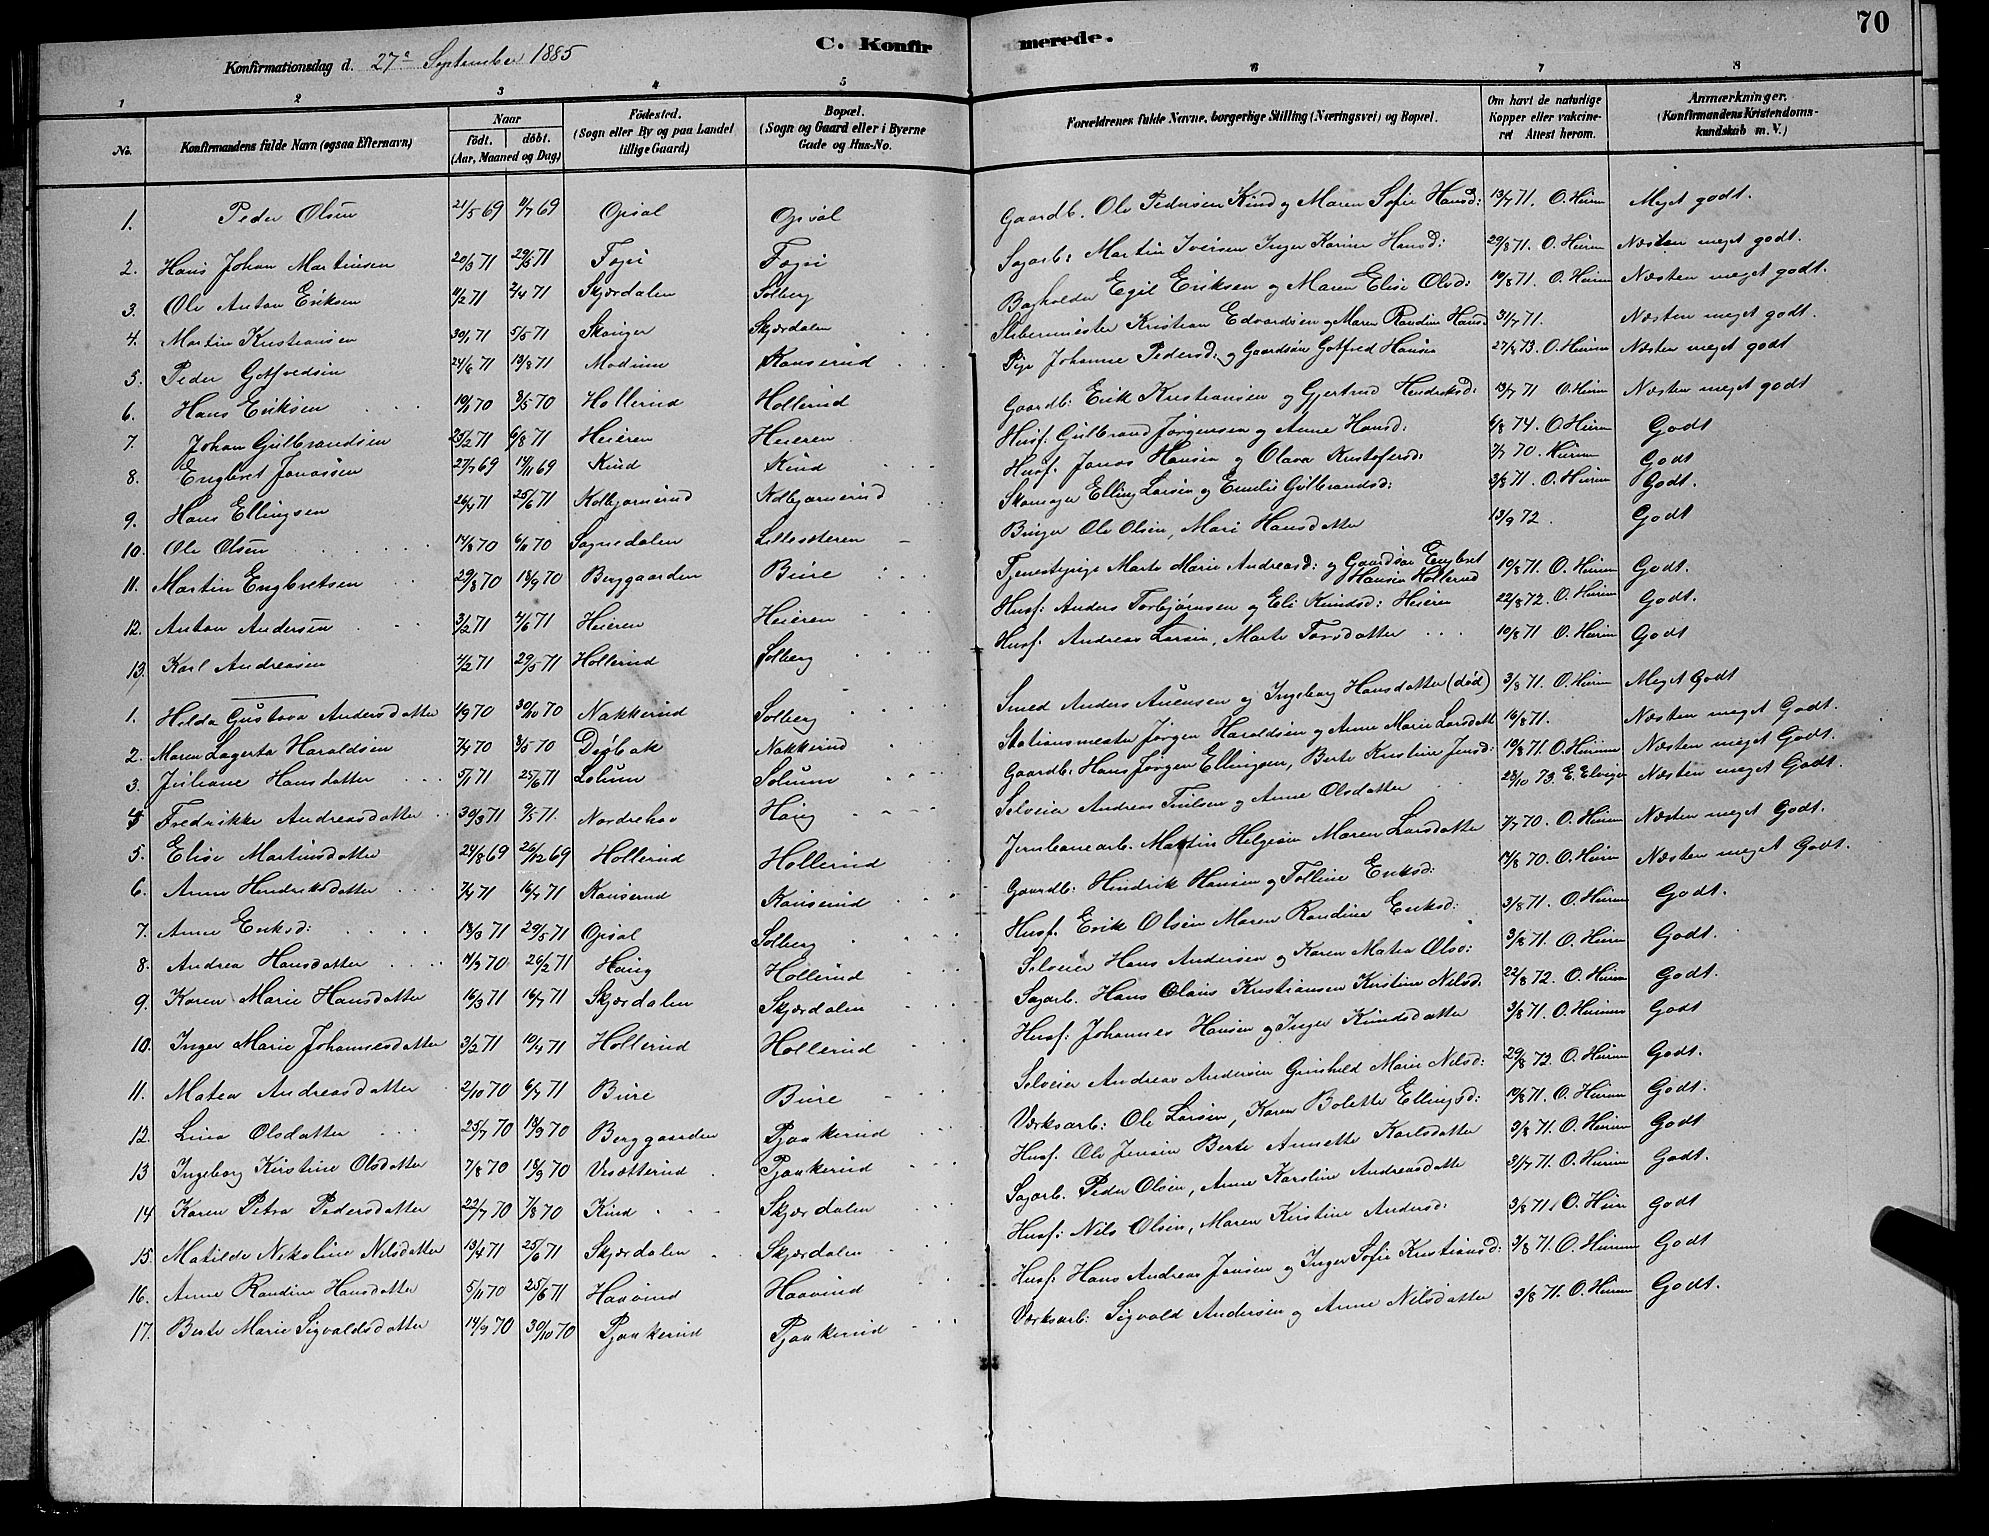 70
C. Konfirmerede.
Konfirmationsdag d. 27de September 1885
1 2 3 4 5 6 7 8
No. Konfirmandens fulde Navn (ogsaa Efternavn) Naar født. døbt. (Aar, Maaned og Dag) Fødested. (Sogn eller By og paa Landet tillige Gaard) Bopæl. (Sogn og Gaard eller i Byerne Gade og Hus-No. Forældrenes fulde Navne, borgerlige Stilling (Næringsvei) og Bopæl. Om havt de naturlige Kopper eller vakcineret Attest herom. Anmærkninger. (Konfirmandens Kristendomskundskab m. V.)
1. Peder Olsen 21/5 69 4/7 69 Opsal Opsal Gaardb. Ole Pedersen Kind og Maren Sofie Hansd: 13/7 71. O. Heiren Meget godt.
2. Hans Johan Martinsen 20/3 71 29/5 71 Sagarb: Martin Iversen Inger Karine Hansd: 29/8 71. O. Heiren Næsten meget godt.
3. Ole Anton Eriksen 11/2 71 2/4 71 Skjærdalen Solberg Bogholder Egil Eriksen og Maren Elise Olsd: 19/8 71. O. Heiren Næsten meget godt.
4. Martin Kristiansen 30/1 71 5/5 71 Skanger Skjærdalen Slibermester Kristian Edvardsen og Maren Randine Hansd 31/7 71. Næsten meget godt.
5. Peder Gotfredsen 24/6 71 13/8 71 Modum Kanserud Pige Johanne Pedersd: og Gaardsøn Gotfred Hansen 27/8 73. O. Heiren Næsten meget godt
6. Hans Eriksen 19/1 70 3/5 70 Hollerud Hollerud Gaardb: Erik Kristiansen og Gjertrud Hendriksd: 13/7 71 O. Heiren Næsten meget godt
7. Johan Gulbrandsen 25/2 71 6/8 71 Heieren Heieren Husf: Gulbrand Jørgensen og Anne Hansd: 6/8 74. O Heiren Godt
8. Engbret Jonassen 27/7 69 14/11 69 Kind Kind Husf. Jonas Hansen og Olava Kristofersd: 7/7 70. Heiren Godt
9. Hans Ellingsen 26/4 71 25/6 71 Kolbjørnrud Kolbjørnerud Skomager Elling Larsen og Emilie Gulbrandsd: 3/8 71. O. Heiren Godt.
10. Ole Olsen 14/8 70 6/11 70 Sognedalen Lillesæteren Ole Olsen, Mari Hansdatter 13/9 72. Godt
11. Martin Engbretsen 29/8 70 18/9 70 Berggaarden Bure Tjenestepige Marte Marie Andreasd: og Gaardsøn Engbret Hansen Hollerud 19/8 71. O. Heiren Godt.
12. Anton Andersen 3/2 71 4/6 71 Heieren Heieren Husf: Anders Torbjørnsen og Eli Knudsd: Heieren 22/8 72. O. Heiren Godt.
13. Karl Andreasen 4/2 71 29/5 71 Hollerud Solberg Husf: Andreas Larsen, Marte Torsdatter 10/8 71 O. Heiren Godt
1. Helda Gustava Andersdatter 1/9 70 30/10 70 Nakkerud Solberg Smed Anders Auensen og Ingeborg Hansdatter (død) 3/8 71. O. Heiren Meget Godt
2. Maren Lagerta Haraldsen 7/4 70 8/5 70 Drøbak Nakkerud Stationsmester Jørgen Haraldsen og Anne Marie Larsdatt 16/8 71. Næsten meget Godt.
3. Juliane Hansdatter 5/1 71 25/6 71 Solum Solum Gaardb: Hans Jørgen Ellingsen, Berte Kristine Jensd: 19/8 71. O. Heiren Næsten meget Godt.
4. Fredrikke Andreasdatter 30/3 71 9/5 71. Norderhov Haug Selveier Andreas Truelsen og Anne Olsdatter 23/10 73. E. Elvigen Næsten meget Godt.
5. Elise Martinsdatter 24/8 69 26/12 69 Hollerud Hollerud Jernbanearb. Martin Helgesen Maren Larsdatter 7/7 70. O. Heiren Næsten meget Godt.
6. Anne Hendriksdatter 7/4 71 16/7 71 Kanserud Kanserud Gaardb: Hindrik Hansen og Tolline Eriksd: 14/8 70. O. Heiren Næsten meget Godt.
7. Anne Eriksd: 13/3 71 29/5 71 Opsal Solberg Husf. Erik Olsen Maren Randine Eriksd: 3/8 71. O. Heiren Godt.
8. Andrea Hansdatter 14/9 70 26/2 71 Haug Hollerud Selveier Hans Andersen og Karen Matea Olsd: 3/8 71. O. Heiren Godt.
9. Karen Marie Hansdatter 16/3 71 16/7 71 Skjærdalen Skjærdalen Sagarb. Hans Olaus Kristiansen Kristine Nilsd. 22/8 72. O. Heiren Godt.
10. Inger Marie Johannesdatter 3/2 71 10/4 71 Hollerud Hollerud Husf: Johannes Hansen og Inger Knudsdatter 3/8 71. O. Heiren Godt
11. Matea Andreasdatter 2/10 70 6/7 71 Bure Bure Selveier Andreas Andersen Gunhild Marie Nilsd: 29/8 72. O. Heiren Godt.
12. Lina Olsdatter 25/7 70 18/9 70 Berggaarden Pjaakerud Værksarb: Ole Larsen, Karen Bolette Ellingsd: 19/8 71. O. Heiren Godt.
13 Ingeborg Kirstine Olsdatter 7/8 70 18/9 70 Vesætterud Pjaakerud Husf. Ole Jensen Berte Annette Karlsdatter 3/8 71. O. Heiren Godt
14 Karen Petra Pedersdatter 22/7 70 7/8 70 Kind Skjærdalen Sagarb. Peder Olsen, Anne Karoline Andreasdatter 3/7 71. O. Heiren Godt.
15. Matilde Nikoline Nilsdatter 13/4 71 25/6 71 Skjærdalen Skjærdalen Husf: Nils Olsen, Maren Kirstine Andersd: 3/8 71. O. Heiren Godt
16. Anne Randine Hansdatter 5/11 70 25/6 71 Haavind Haavind Husf: Hans Andreas Jensen og Inger Sofie Kristiansd: 3/8 71. O. Heiren Godt
17. Berte Marie Sigvaldsdatter 14/9 70 30/10 70 Pjaakerud Pjaakerud Værksarb: Sigvald Andersen og Anne Nilsdatter 3/8 71. O. Heiren Godt.